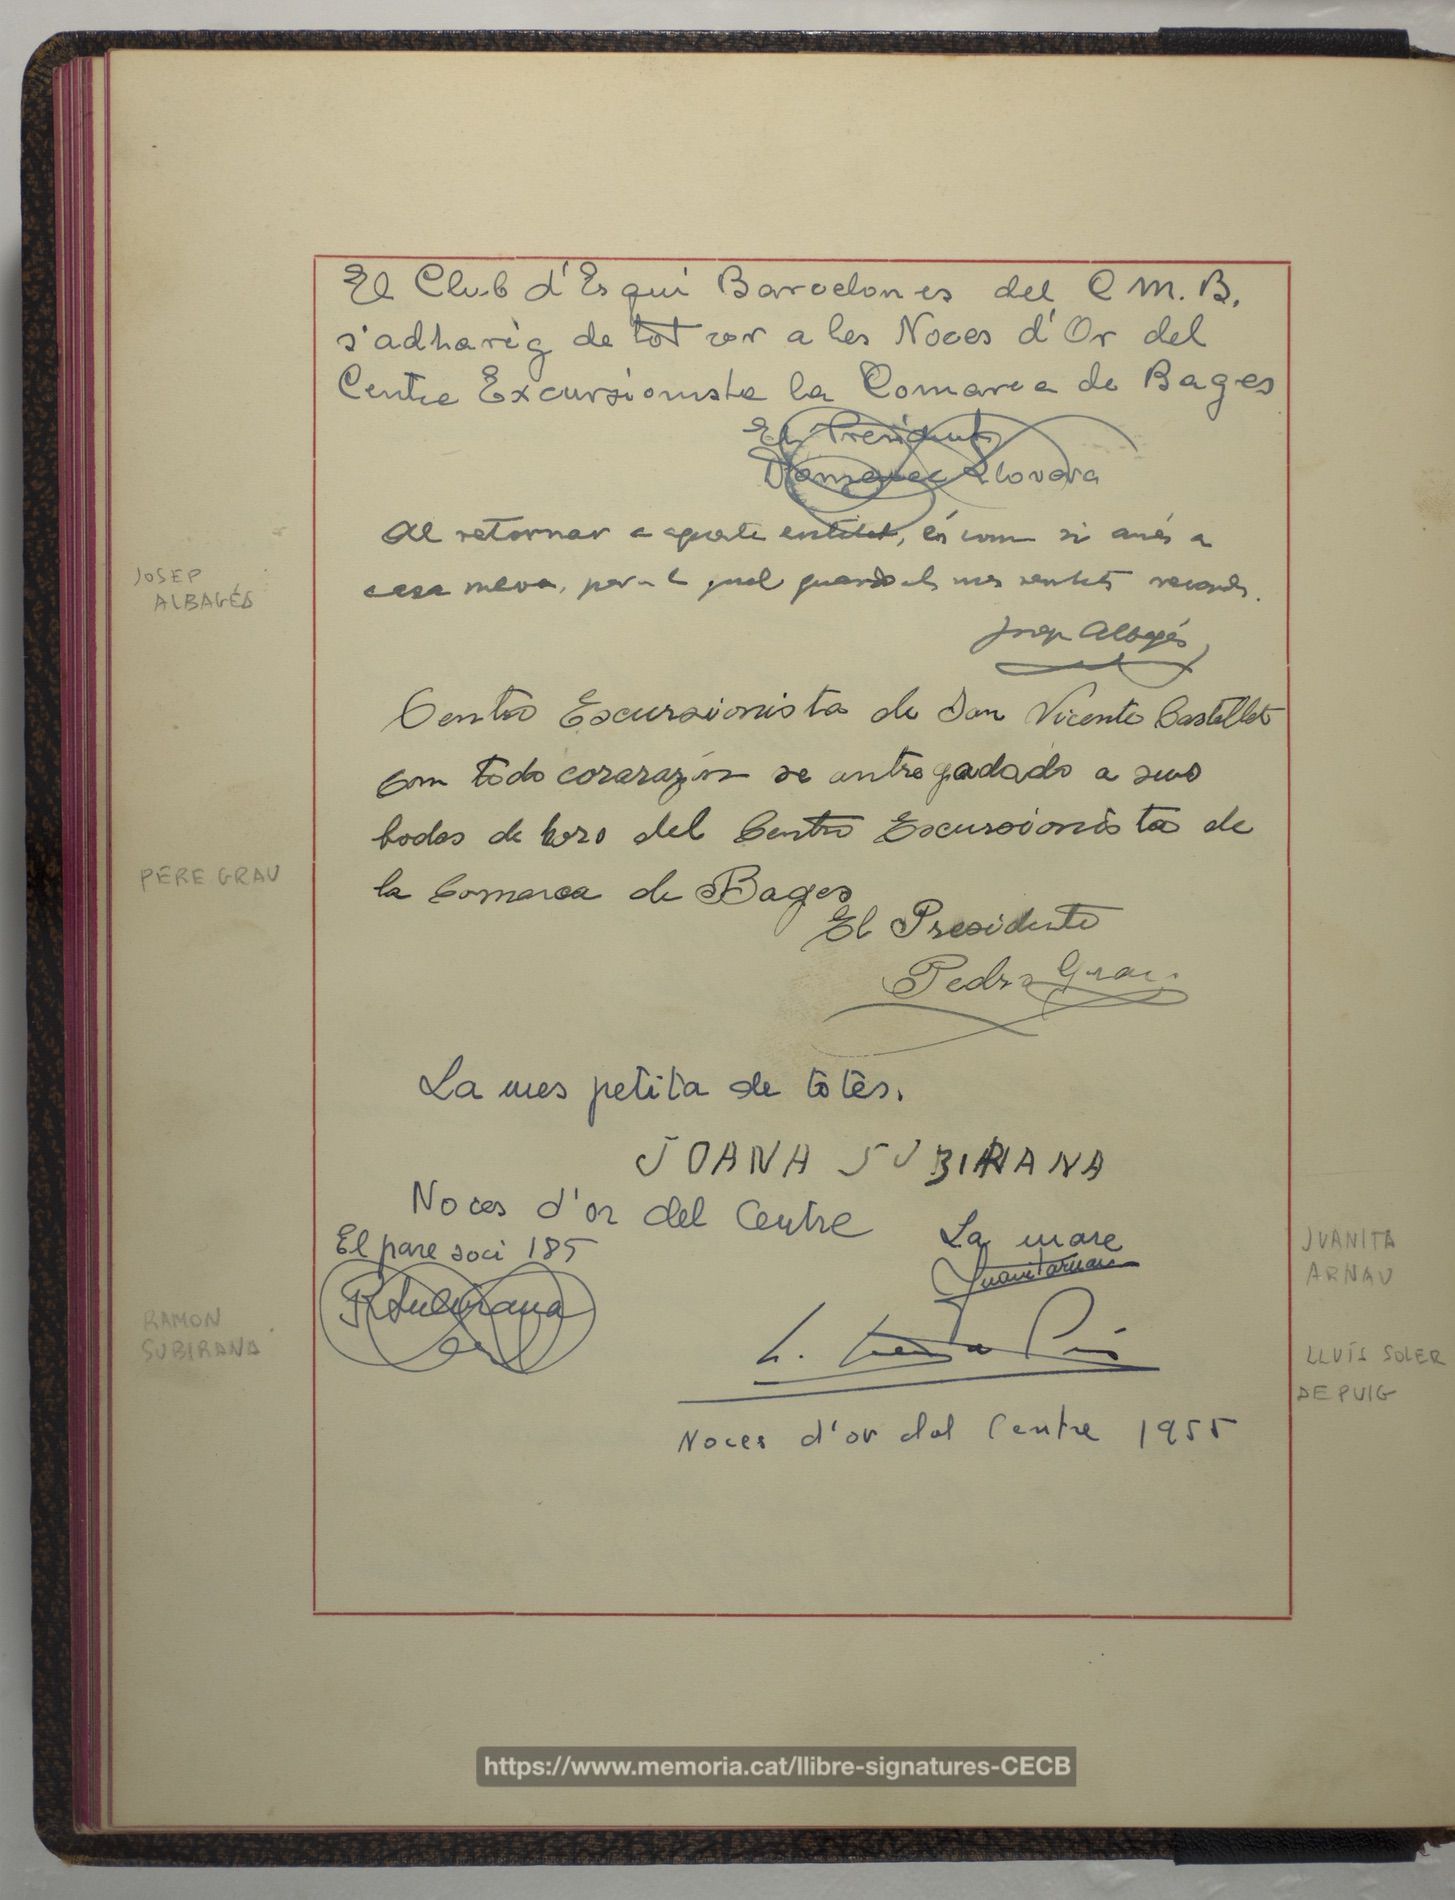 El Club d'Esqui Barcelones del C M. B.
s'adhareig de tot cor a les Noces d'Or del
Centre Excursionista la Comarca de Bages
El President
Llovera
Al retornar a aquesta entitat, és com si anés a
JOSEP
ALBAGÉS
casa meva, per el qual guardo els mes records.
Josep Albagés
Centro Escursionista de San Vicente Castellet
Com todo corarazón se antregadado a suus
bodas de horo del Centro Escursionista de
PERE GRAU
la Comarca de Bages
El Presidente
Pedro Grau
La mes petita de totes.
JOANA SUBIRANA
Noces d'or del Centre
El pare soci 185
La mare
JUANITA
ARNAU
Juanita Arnau
R Subirana
RAMON
SUBIRANA
LLUÍS SOLER
DE PUIG
Noces d'or del Centre 1955
https://www.memoria.cat/llibre-signatures-CECB